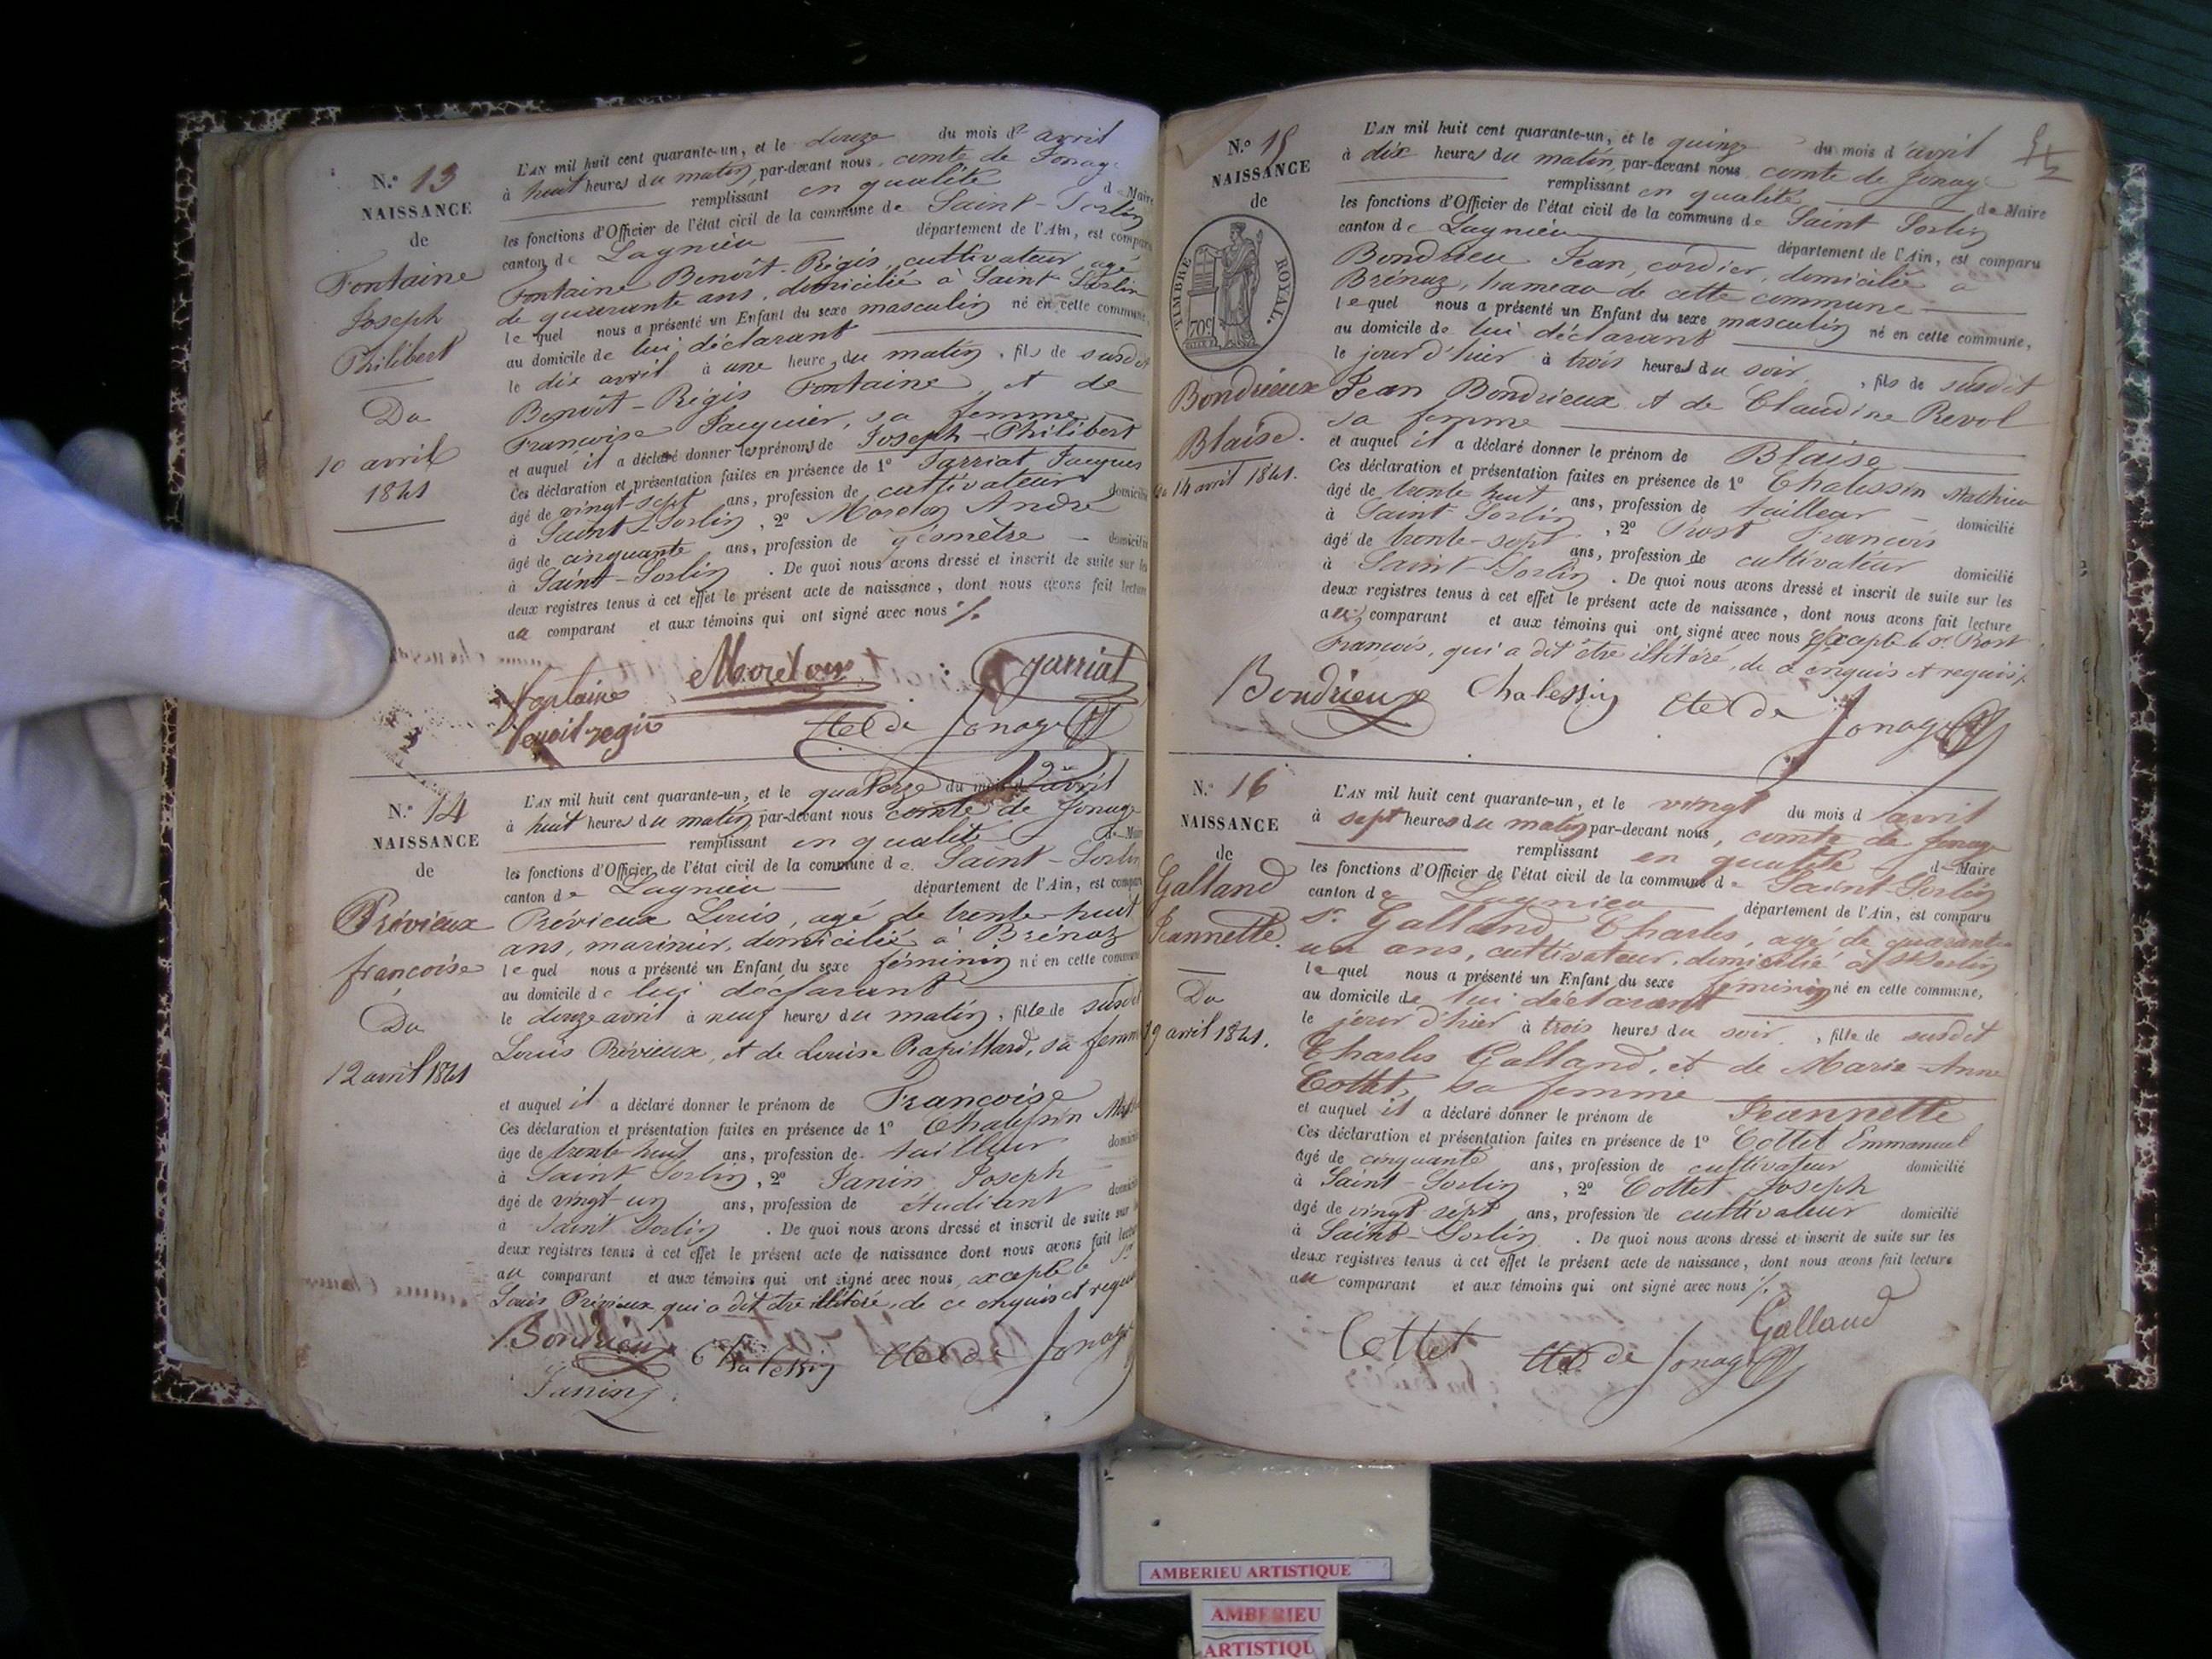 N.º 13
NAISSANCE
de
Fontaine
Joseph
Philibert
Du
10 avril
1841
L'AN mil huit cent quarante-un, et le douze du mois d' avril
à huit heures du matin, par-devant nous, comte de Jonage
remplissant en qualité de Maire
les fonctions d'Officier de l'état civil de la commune de Saint-Sorlin
canton de Lagnieu département de l'Ain, est comparu
Fontaine Benoît-Régis, cultivateur agé
de quarante ans, domicilié à Saint Sorlin
lequel nous a présenté un Enfant du sexe masculin né en cette commune,
au domicile de lui déclarant
le dix avril à une heure du matin, fils de susdit
Benoît-Régis Fontaine et de
Françoise Jacquier, sa femme
et auquel il a déclaré donner les prénoms de Joseph-Philibert
Ces déclaration et présentation faites en présence de 1º Jarriat Jacques
âgé de vingt-sept ans, profession de cultivateur domicilié
à Saint-Sorlin, 2º Morelon André
âgé de cinquante ans, profession de géomètre domicilié
à Saint-Sorlin. De quoi nous avons dressé et inscrit de suite sur les
deux registres tenus à cet effet le présent acte de naissance, dont nous avons fait lecture
au comparant et aux témoins qui ont signé avec nous ./.
fontaine Morelon jarriat
benoit regis Cte de Jonage
N.º 14
NAISSANCE
de
Prévieux
françoise
Du
12 avril 1841
L'AN mil huit cent quarante-un, et le quatorze du mois d'avril
à huit heures du matin par-devant nous comte de Jonage
remplissant en qualité de Maire
les fonctions d'Officier de l'état civil de la commune de Saint-Sorlin
canton de Lagnieu département de l'Ain, est comparu
Prévieux Louis, agé de trente-huit
ans, marinier, domicilié à Brénaz
lequel nous a présenté un Enfant du sexe féminin né en cette commune
au domicile de lui déclarant
le douze avril à neuf heures du matin, fille de susdit
Louis Prévieux, et de Louise Rapillard, sa femme
et auquel il a déclaré donner le prénom de Françoise
Ces déclaration et présentation faites en présence de 1º Chalessin
âge de trente-huit ans, profession de tailleur domicilié
à Saint Sorlin, 2º Janin Joseph
âgé de vingt-un ans, profession de étudiant domicilié
à Saint Sorlin. De quoi nous avons dressé et inscrit de suite sur
deux registres tenus à cet effet le présent acte de naissance dont nous avons fait lecture
au comparant et aux témoins qui ont signé avec nous, excepté le
Louis Prévieux, qui a dit être illitéré, de ce enquis et requis
Bondrieux Chalessin Cte de Jonage
Janin
N.º 15
NAISSANCE
de
TIMBRE ROYAL.
70c
Bondrieux
Blaise.
Du 14 avril 1841.
L'AN mil huit cent quarante-un, et le quinze du mois d'avril
à dix heures du matin, par-devant nous, comte de Jonage
remplissant en qualité de Maire
les fonctions d'Officier de l'état civil de la commune de Saint Sorlin
canton de Lagnieu département de l'Ain, est comparu
Bondrieu Jean, cordier, domicilié à
Brénaz, hameau de cette commune
lequel nous a présenté un Enfant du sexe masculin né en cette commune,
au domicile de lui déclarant
le jour d'hier à trois heures du soir, fils de susdit
Jean Bondrieux et de Claudine Revol
sa femme
et auquel il a déclaré donner le prénom de Blaise
Ces déclaration et présentation faites en présence de 1º Chalessin Mathieu
âgé de trente huit ans, profession de tailleur domicilié
à Saint-Sorlin, 2º Prost François
âgé de trente-sept ans, profession de cultivateur domicilié
à Saint-Sorlin. De quoi nous avons dressé et inscrit de suite sur les
deux registres tenus à cet effet le présent acte de naissance, dont nous avons fait lecture
au comparant et aux témoins qui ont signé avec nous excepté le sr Prost
François, qui a dit être illitéré, de ce enquis et requis ./.
Bondrieux Chalessin Cte de Jonage
N.º 16
NAISSANCE
de
Galland
Jeannette.
Du
19 avril 1841.
L'AN mil huit cent quarante-un, et le vingt du mois d'avril
à sept heures du matin par-devant nous, comte de Jonage
remplissant en qualité de Maire
les fonctions d'Officier de l'état civil de la commune de Saint-Sorlin
canton de Lagnieu département de l'Ain, est comparu
sr Galland Charles, agé de quarante
un ans, cultivateur, domicilié à St Sorlin
lequel nous a présenté un Enfant du sexe féminin né en cette commune,
au domicile de lui déclarant
le jour d'hier à trois heures du soir, fille de susdit
Charles Galland, et de Marie-Anne
Cottet, sa femme
et auquel il a déclaré donner le prénom de Jeannette
Ces déclaration et présentation faites en présence de 1º Cottet Emmanuel
âgé de cinquante ans, profession de cultivateur domicilié
à Saint-Sorlin, 2º Cottet Joseph
âgé de vingt sept ans, profession de cultivateur domicilié
à Saint-Sorlin. De quoi nous avons dressé et inscrit de suite sur les
deux registres tenus à cet effet le présent acte de naissance, dont nous avons fait lecture
au comparant et aux témoins qui ont signé avec nous ./.
Cottet Cte de Jonage Galland
AMBERIEU ARTISTIQUE
AMBERIEU
ARTISTIQU